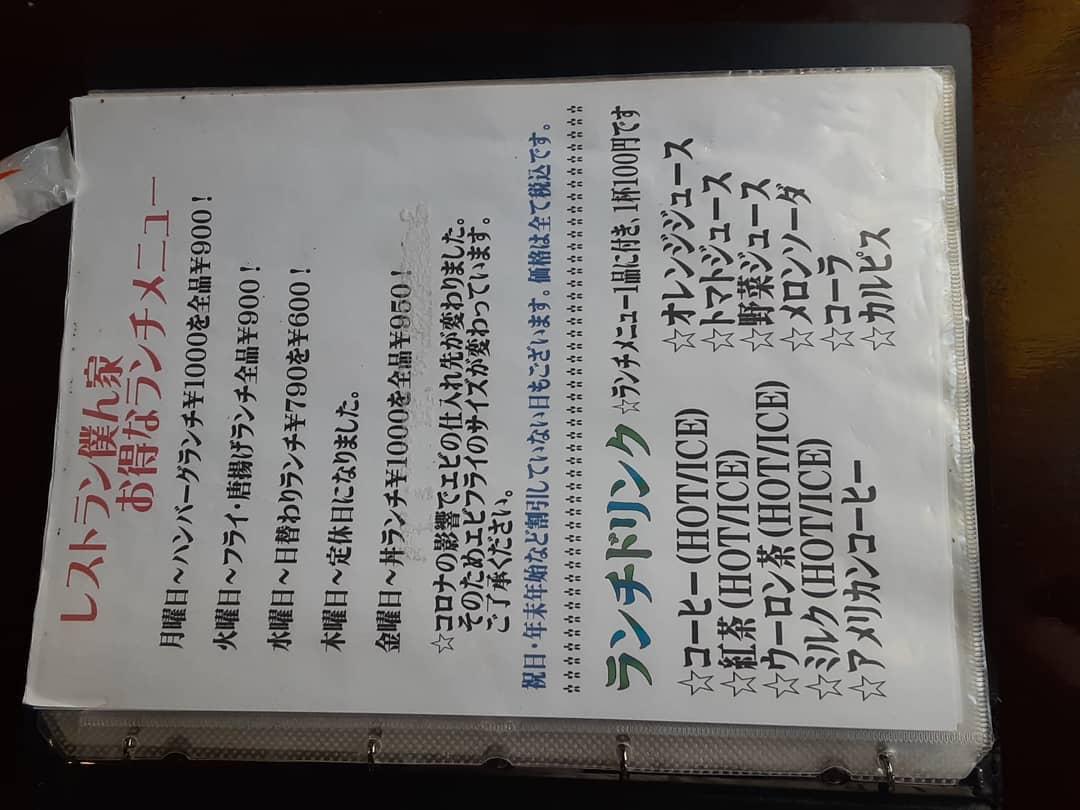 レストラン僕ん家
お得なランチメニュー
月曜日～ハンバーグランチ¥1000を全品¥900！
火曜日～フライ・唐揚げランチ全品¥900！
水曜日～日替わりランチ¥790を¥600！
木曜日～定休日になりました。
金曜日～丼ランチ¥1000を全品¥950！
☆コロナの影響でエビの仕入れ先が変わりました。
そのためエビフライのサイズが変わっています。
ご了承ください。
祝日・年末年始など割引していない日もございます。価格は全て税込です。
ランチドリンク ☆ランチメニュー1品に付き、1杯100円です
☆コーヒー(HOT/ICE)
☆紅茶(HOT/ICE)
☆ウーロン茶(HOT/ICE)
☆ミルク(HOT/ICE)
☆アメリカンコーヒー
☆オレンジジュース
☆トマトジュース
☆野菜ジュース
☆メロンソーダ
☆コーラ
☆カルピス